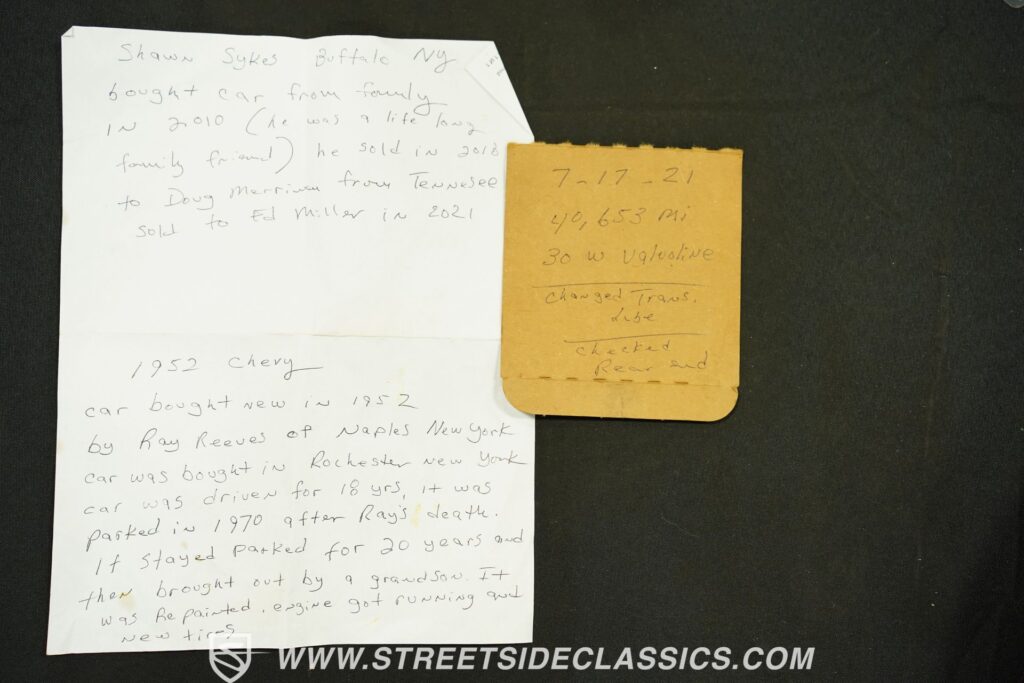 Shawn Sykes Buffalo NY
bought car from family
IN 2010 (he was a life long
family friend) he sold in 2018
to Doug Merriman from Tennesee
sold to Ed Miller in 2021
1952 Chevy
car bought new in 1952
by Ray Reeves of Naples New York
car was bought in Rochester New York
car was driven for 18 yrs, it was
parked in 1970 after Ray's death.
It stayed parked for 20 years and
then brought out by a grandson. It
was Repainted. engine got running and
new tires
7-17-21
40,653 mi
30 W Valvoline
Changed Trans.
Lube
Checked
Rear end
WWW.STREETSIDECLASSICS.COM